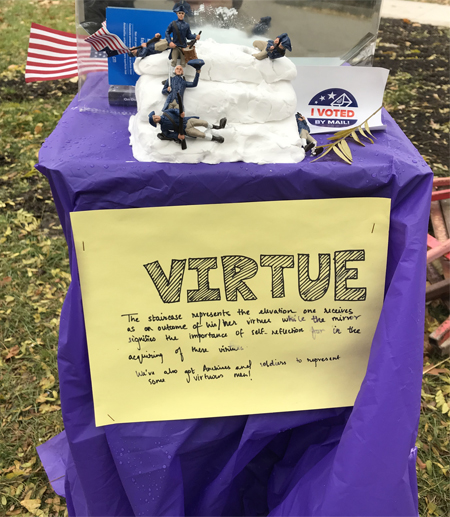 I VOTED
BY MAIL!
VIRTUE
The staircase represents the elevation one receives
as an outcome of his/her virtues while the mirror
signifies the importance of self-reflection in the
acquiring of these virtues
We've also got and soldiers to represent
some virtuous men!